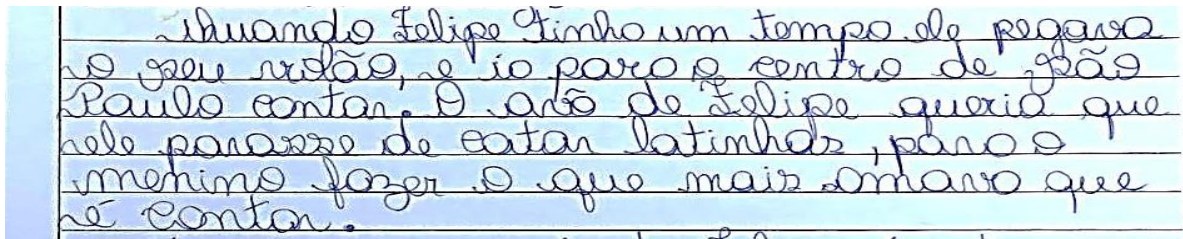 Quando Felipe tinha um tempo ele pegava
o seu violão, e ia para o centro de São
Paulo cantar. O avô de Felipe queria que
ele parasse de catar latinhas, para o
menino fazer o que mais amava que
é cantar.